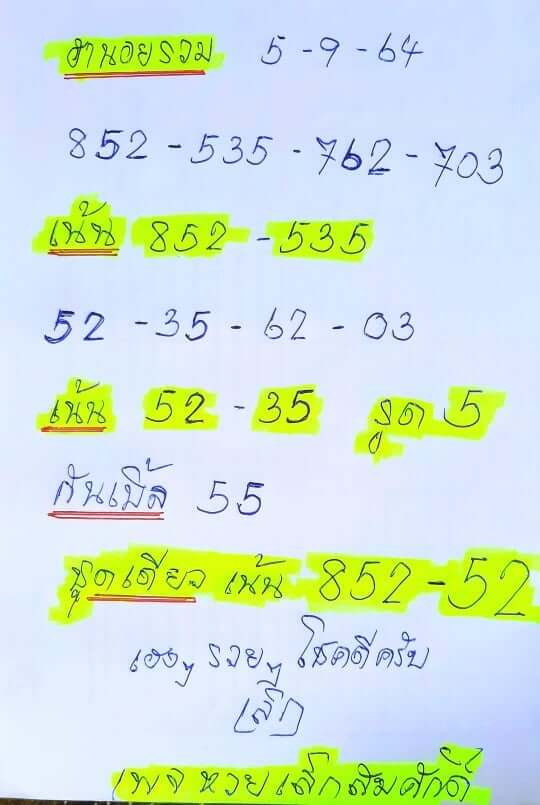 ฮานอยรวม 5-9-64
852-535-762-703
เน้น 852-535
52-35-62-03
เน้น 52-35 รูด 5
กันเบิ้ล 55
ชุดเดียว เน้น 852-52
เฮงๆ รวยๆ โชคดีครับ
เพจ หวยเล็กสมศักดิ์